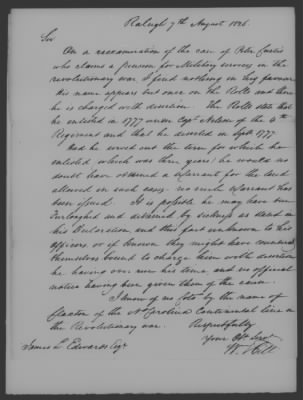 Raleigh 7th August 1826.
Sir
On a reexamination of the case of Peter Curtis
who claims a pension for Military services in the
revolutionary war. I find nothing in his favour
His name appears but once on the Rolls and there
he is charged with desertion. The Rolls state that
he enlisted in 1777 under Capt Nelson of the 4th
Regiment and that he deserted in Septr 1777
Had he served out the term for which he
enlisted which was three years: he would no
doubt have obtained a Warrant for the land
allowed in such cases - no such Warrant has
been issued. It is possible he may have been
Furloughed and detained by sickness as stated in
his Declaration and this fact unknown to his
officers, or if known they might have considered
themselves bound to charge him with desertion
he having over run his time and no official
notice having been given them of the cause.
I know of no by the name of
Claxton of the No Carolina Continental line in
the Revolutionary war. Respectfully
Your Obt Servt
Wm Hill
James L Edwards Esqr